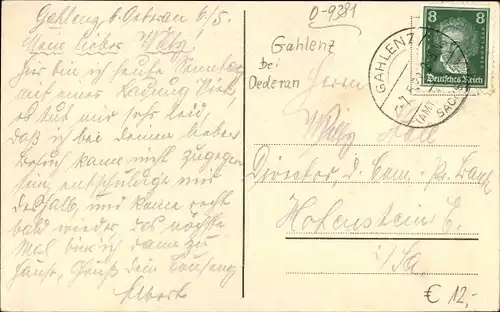 Gahlenz b. Oederan 6/5.
Mein lieber Willy!
Hier bin ich heute Sonntag
auf einer Ladung Vieh,
es tut mir sehr leid,
daß ich bei deinem lieben
Besuch kann nicht zugegen
sein, entschuldige mich
deshalb, und komme recht
bald wieder, das nächste
Mal bin ich dann zu
Hause, Gruß dein
Albert
0-9381
Gahlenz
bei
Oederan
8 8
Deutsches Reich
GAHLENZ
(AMT
SACHS
Herrn
Willy
Director, d. Com.
Hohenstein E.
i/Sa.
€ 12,-